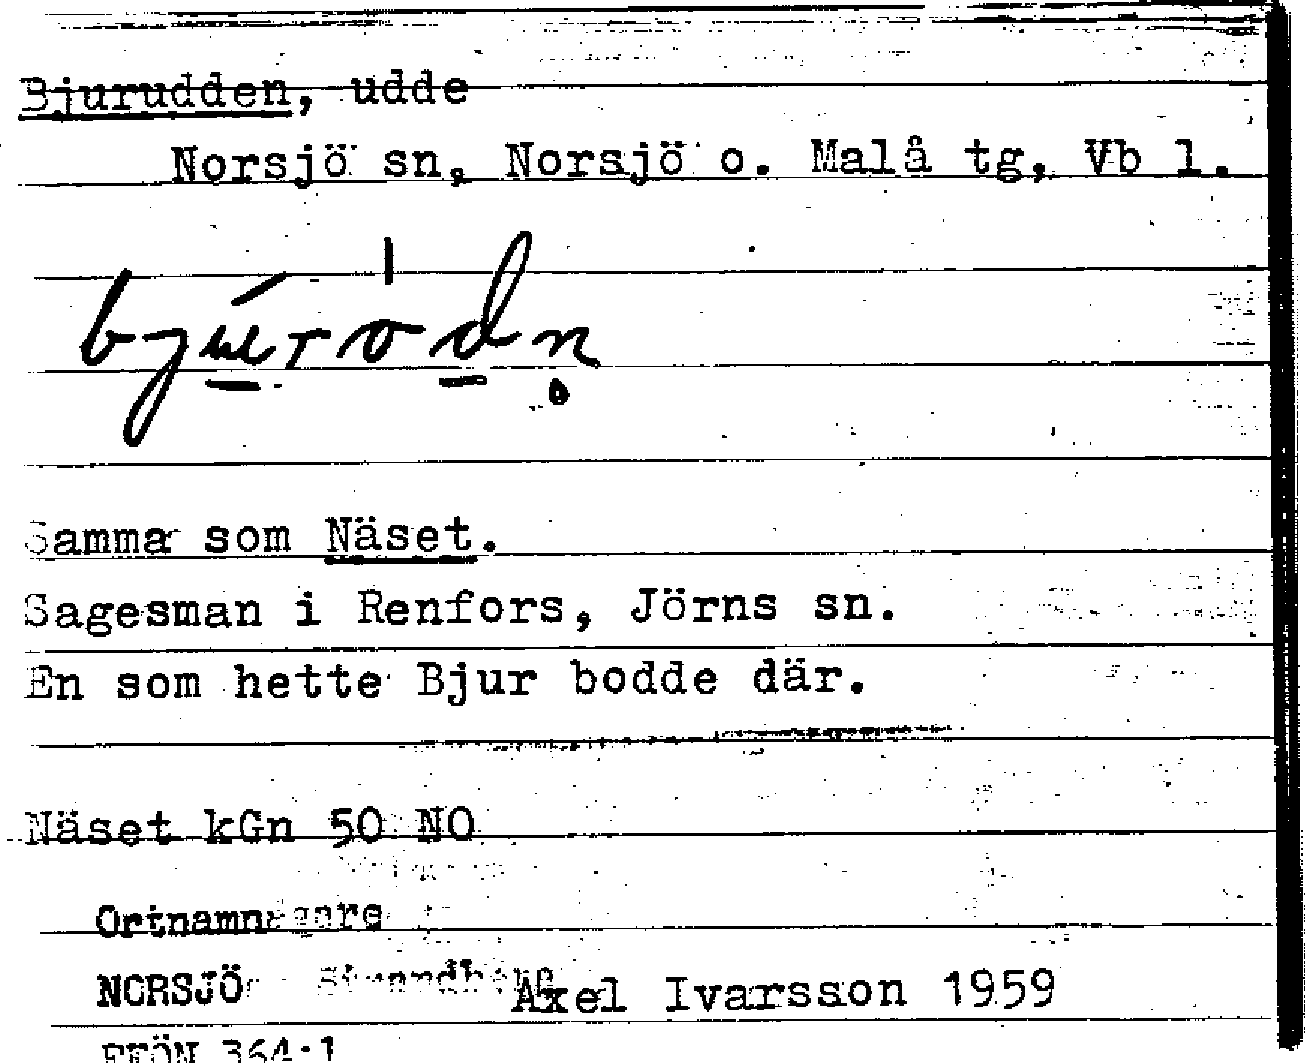 Bjurudden, udde
Norsjö sn, Norsjö o. Malå tg, Vb l.
Samma som Näset.
Sagesman i Renfors, Jörns sn.
En som hette Bjur bodde där.
Näset kGn 50 NO
NORSJÖ Axel Ivarsson 1959
364:1